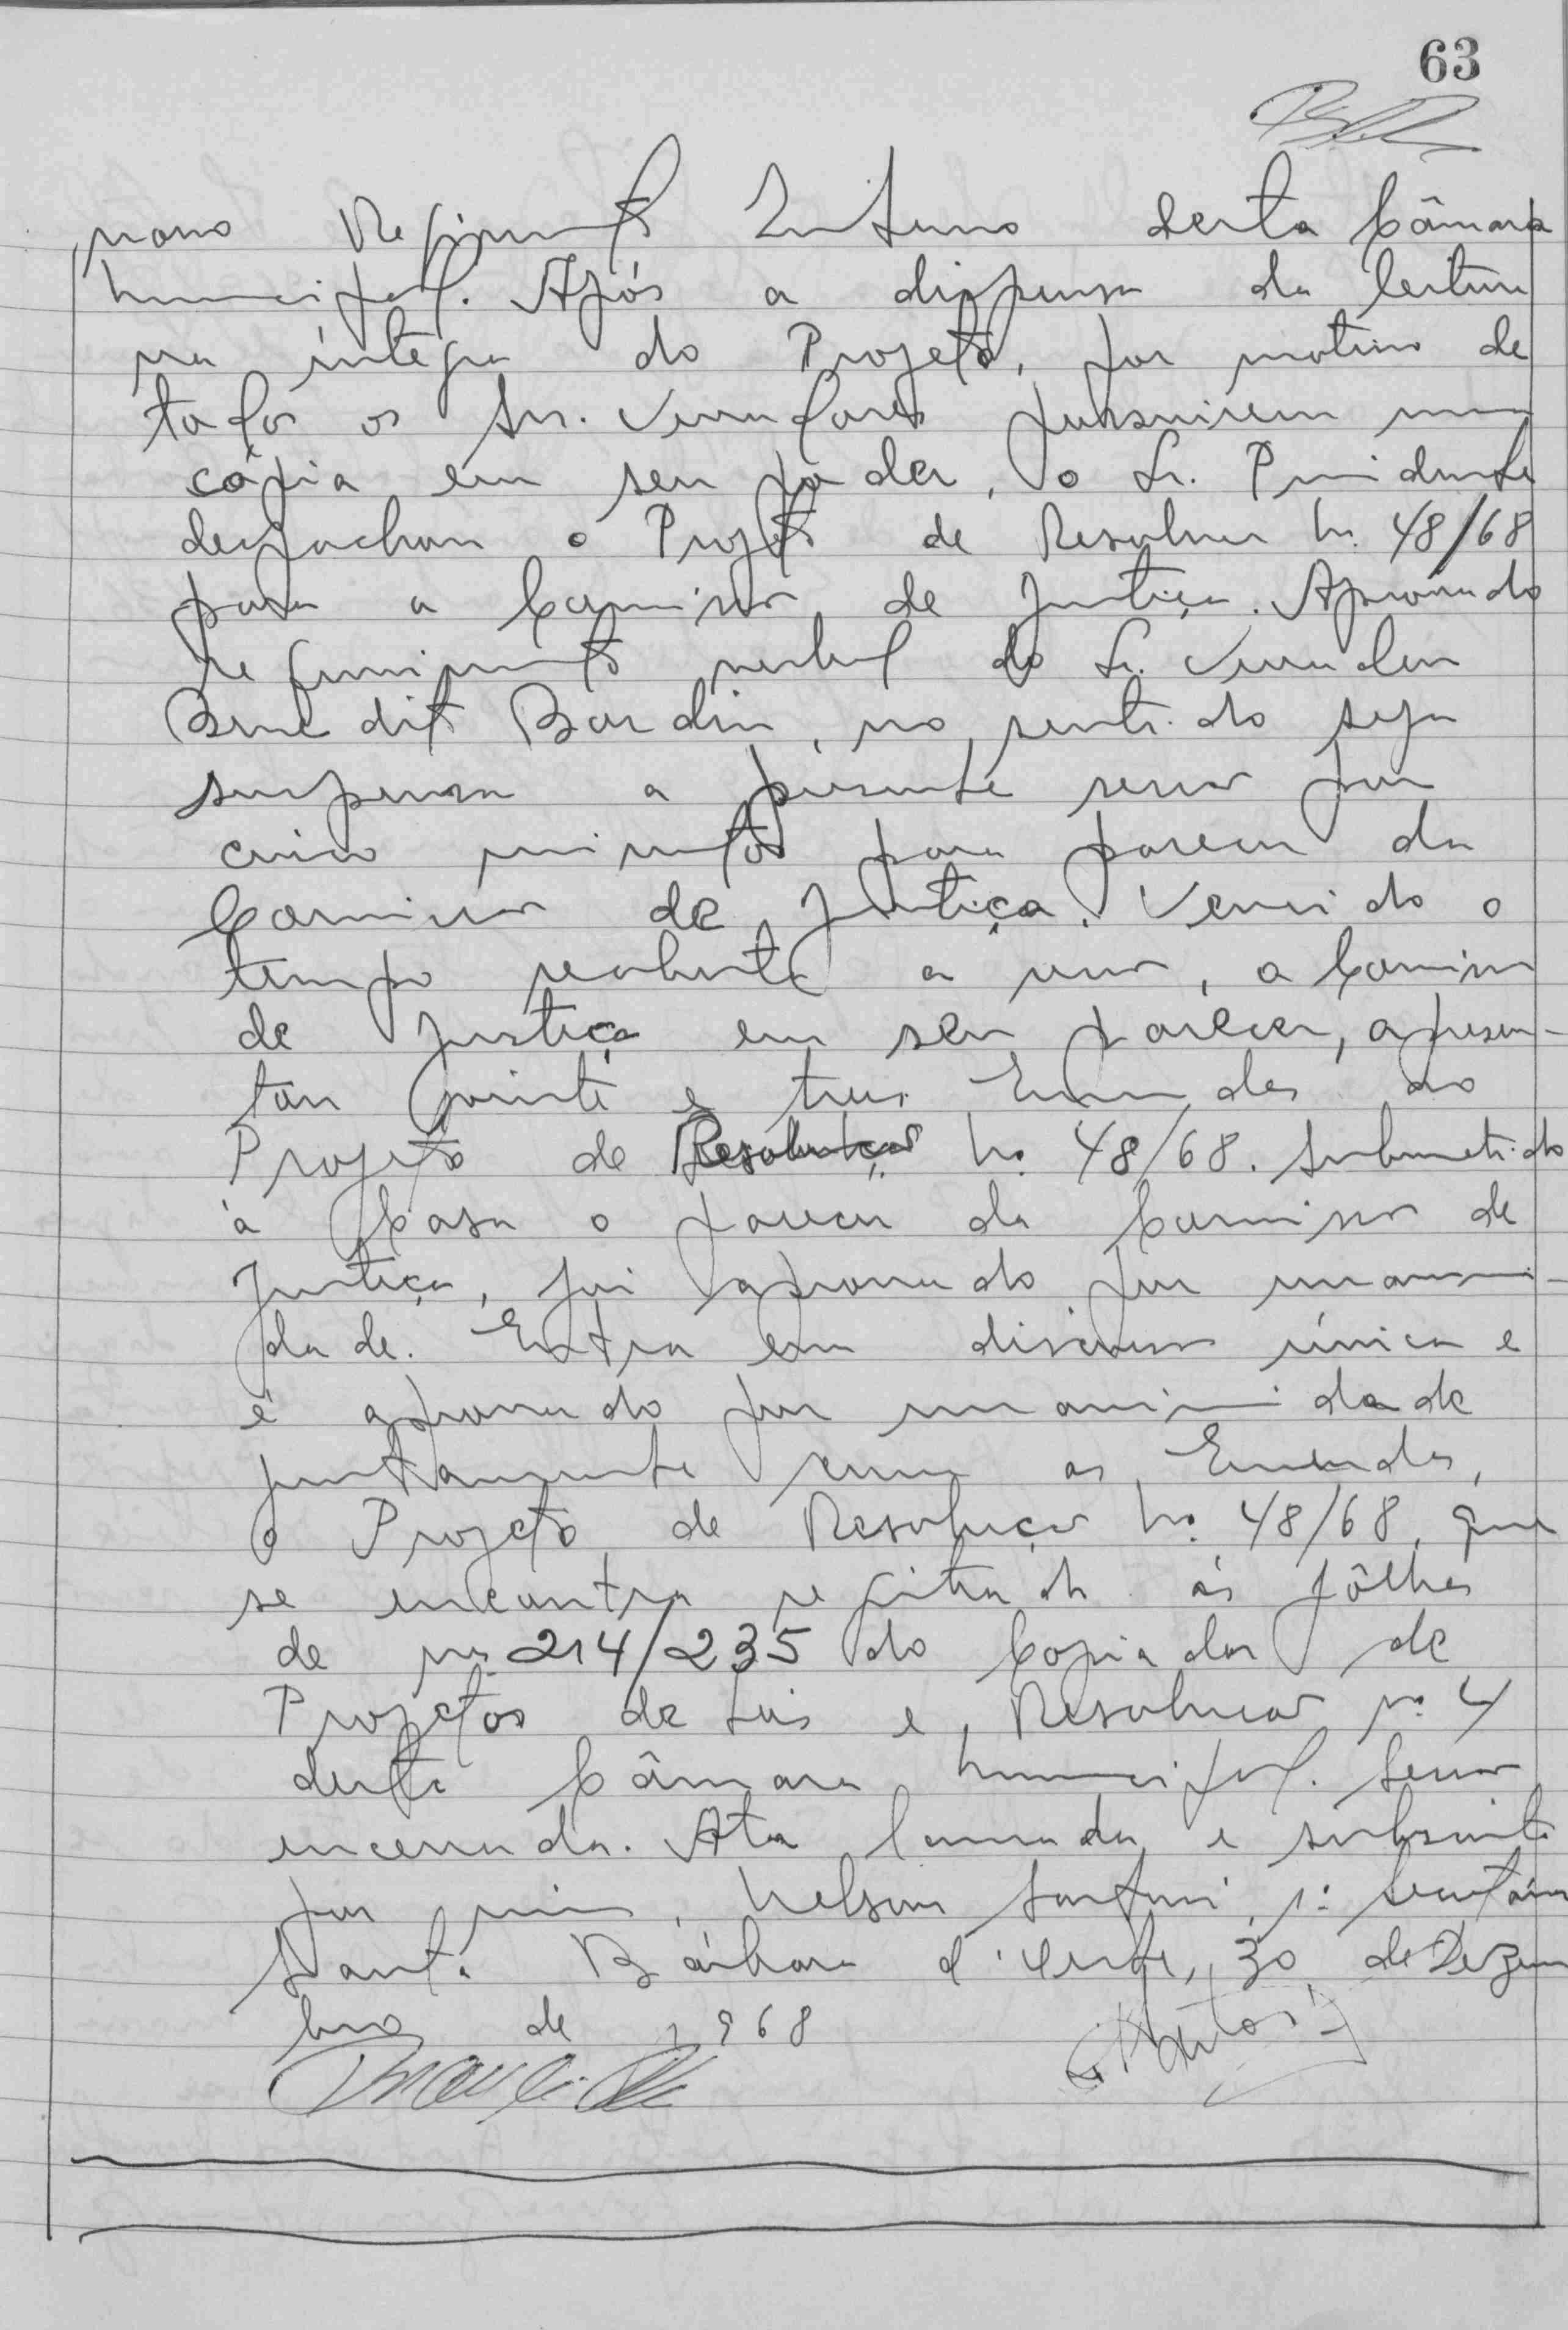 63
novo Regimento Interno desta Câmara
Municipal. Após a dispensa da leitura
na íntegra do Projeto, por motivo de
todos os Srs. Vereadores possuirem uma
cópia em seu poder, o Sr. Presidente
despachou o Projeto de Resolução Nº 48/68
para a Comissão de Justiça. Aprovado
requerimento verbal do Sr. Vereador
Benedito Bardin, no sentido seja
suspensa a presente sessão por
cinco minutos para parecer da
Comissão de Justiça. Vencido o
tempo reaberta a sessão, a Comissão
de Justiça em seu parecer, apresen-
tou vinte e tres Emendas ao
Projeto de Resolução Nº 48/68. Submetido
à Casa o parecer da Comissão de
Justiça, foi aprovado por unanimi-
dade. Entra em discussão única e
é aprovado por unanimidade
juntamente com as Emendas,
o Projeto de Resolução Nº 48/68, que
se encontra registrado às fôlhas
de nº 214/235 do Copiador de
Projetos de Leis e Resolução nº 4
desta Câmara Municipal. Sessão
encerrada. Ata lavrada e subscrita
por mim, Nelson 1º Secretário
Santa Bárbara d'Oeste, 30 de Dezem
bro de 1968